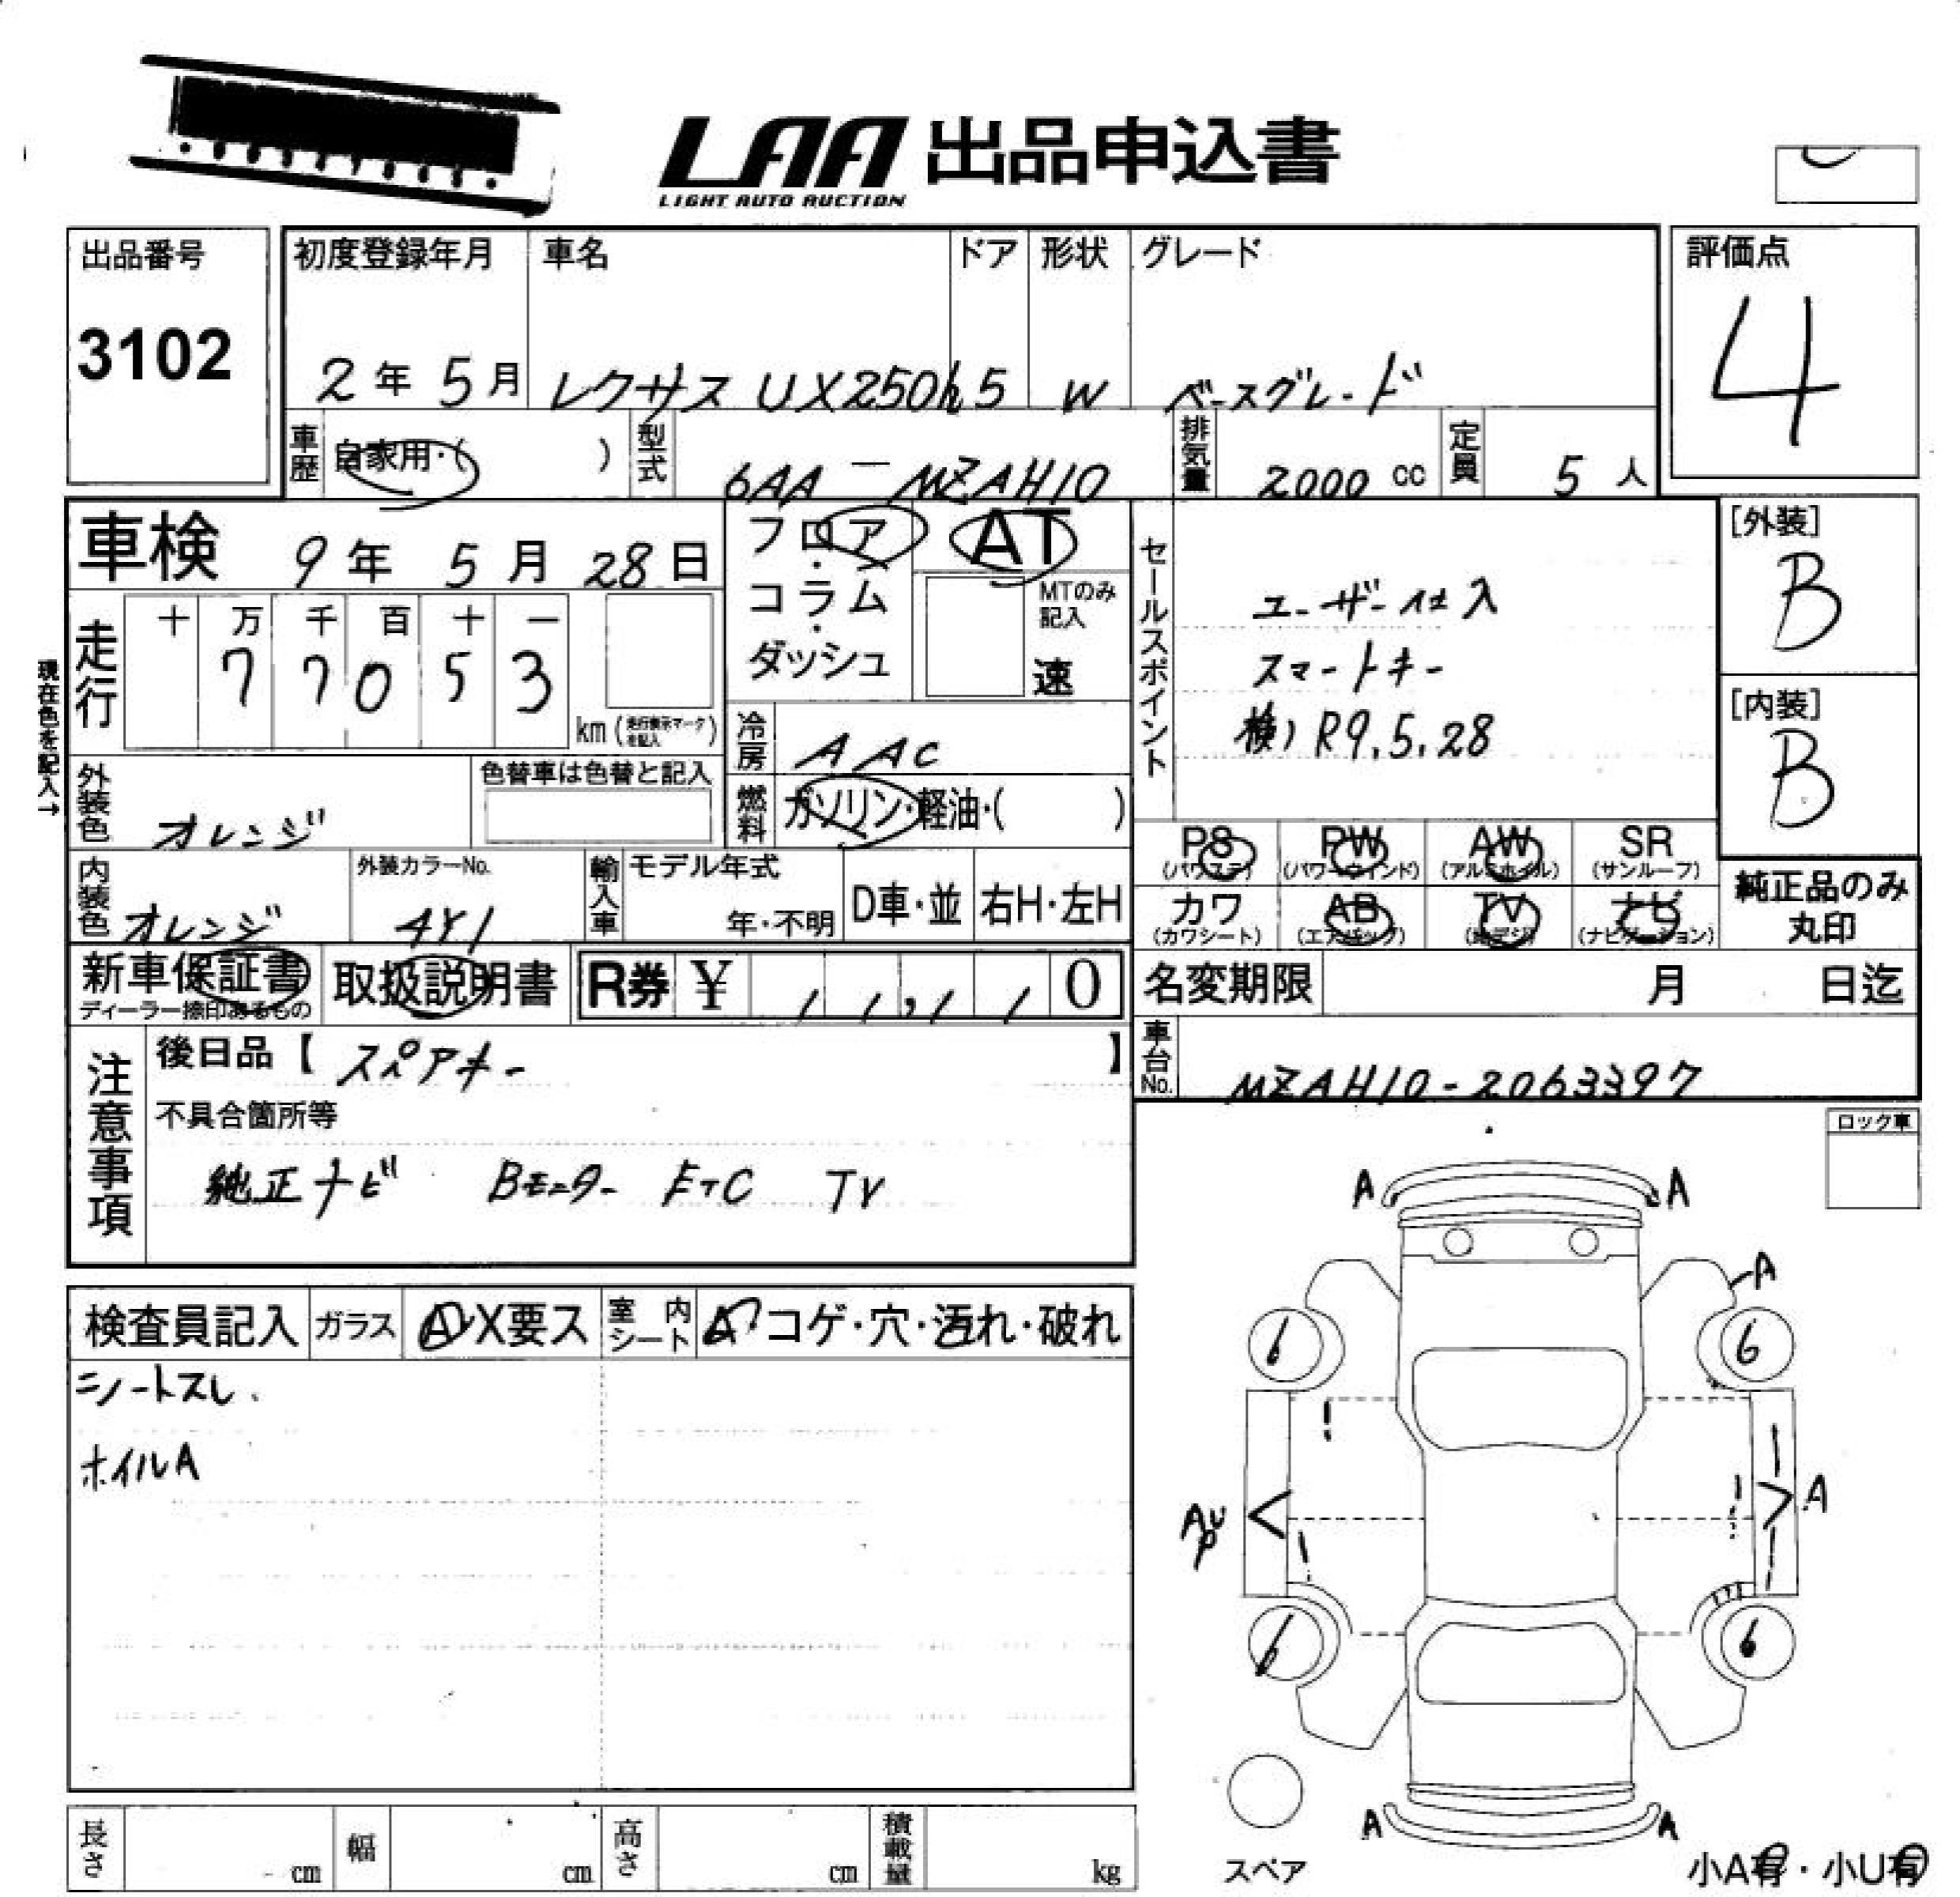 LAA 出品申込書
LIGHT AUTO AUCTION
出品番号
3102
初度登録年月 車名 ドア 形状 グレード
2年 5月 レクサス UX250h 5 W ベースグレード
評価点
4
車歴 自家用・( ) 型式 6AA-MZAH10 排気量 2000 cc 定員 5 人
車検 9年 5月 28日
フロア・コラム・ダッシュ
AT
MTのみ記入
速
現在色を記入→
走行 十 万 千 百 十 一
7 7 0 5 3
km (走行表示マークを記入)
冷房 AAC
燃料 ガソリン・軽油・( )
外装色 オレンジ 色替車は色替と記入
内装色 オレンジ 外装カラーNo. 4Y1 輸入車 モデル年式 年・不明 D車・並 右H・左H
新車保証書 取扱説明書 R券 ¥ 0
ディーラー捺印あるもの
セールスポイント
ユーザー仕入
スマートキー
検)R9.5.28
[外装]
B
[内装]
B
PS PW AW SR
(パワステ) (パワーウインド) (アルミホイル) (サンルーフ)
カワ AB TV ナビ
(カワシート) (エアバッグ) (地デジ) (ナビゲーション)
純正品のみ
丸印
名変期限 月 日迄
車台No. MZAH10-2063397
注意事項
後日品【スペアキー】
不具合箇所等
純正ナビ Bモニター ETC TV
ロック車
検査員記入 ガラス A・X要ス 室内シート A・コゲ・穴・汚れ・破れ
シートスレ.
ホイルA
A A
A
6 6
AU
P
A
6 6
A A
スペア
小A有・小U有
長さ cm 幅 cm 高さ cm 積載量 kg